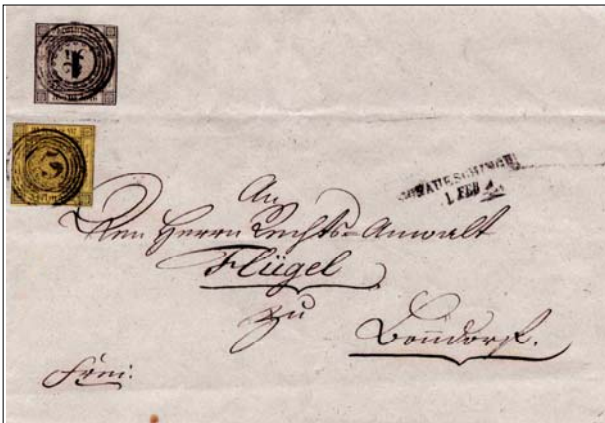 1
3
DONAUESCHINGEN
1. FEB
An
Den Herrn Rechts-Anwalt
Flügel
zu
Bonndorf.
frei.